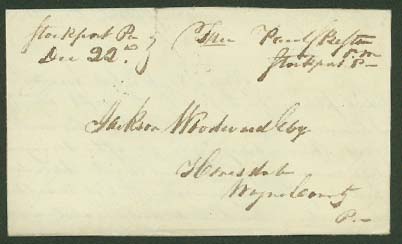 Stockport Pa
Dec 22d
Free Paul S Preston
P.M
Stockport Pa
Jackson Woodward Esq
Honesdale
Wayne County
Pa